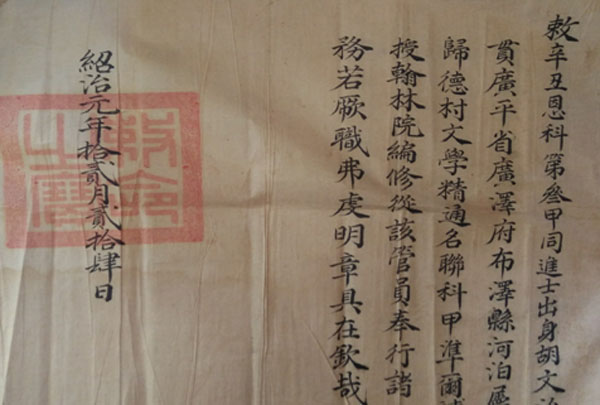 敕辛丑恩科第叁甲同進士出身胡文
貫廣平省廣澤府布澤縣河泊屬
歸德村文學精通名聯科甲準爾
授翰林院編修從該管員奉行諸
務若厥職弗虔明章具在欽哉
紹治元年拾貳月貳拾肆日
敕命之寶